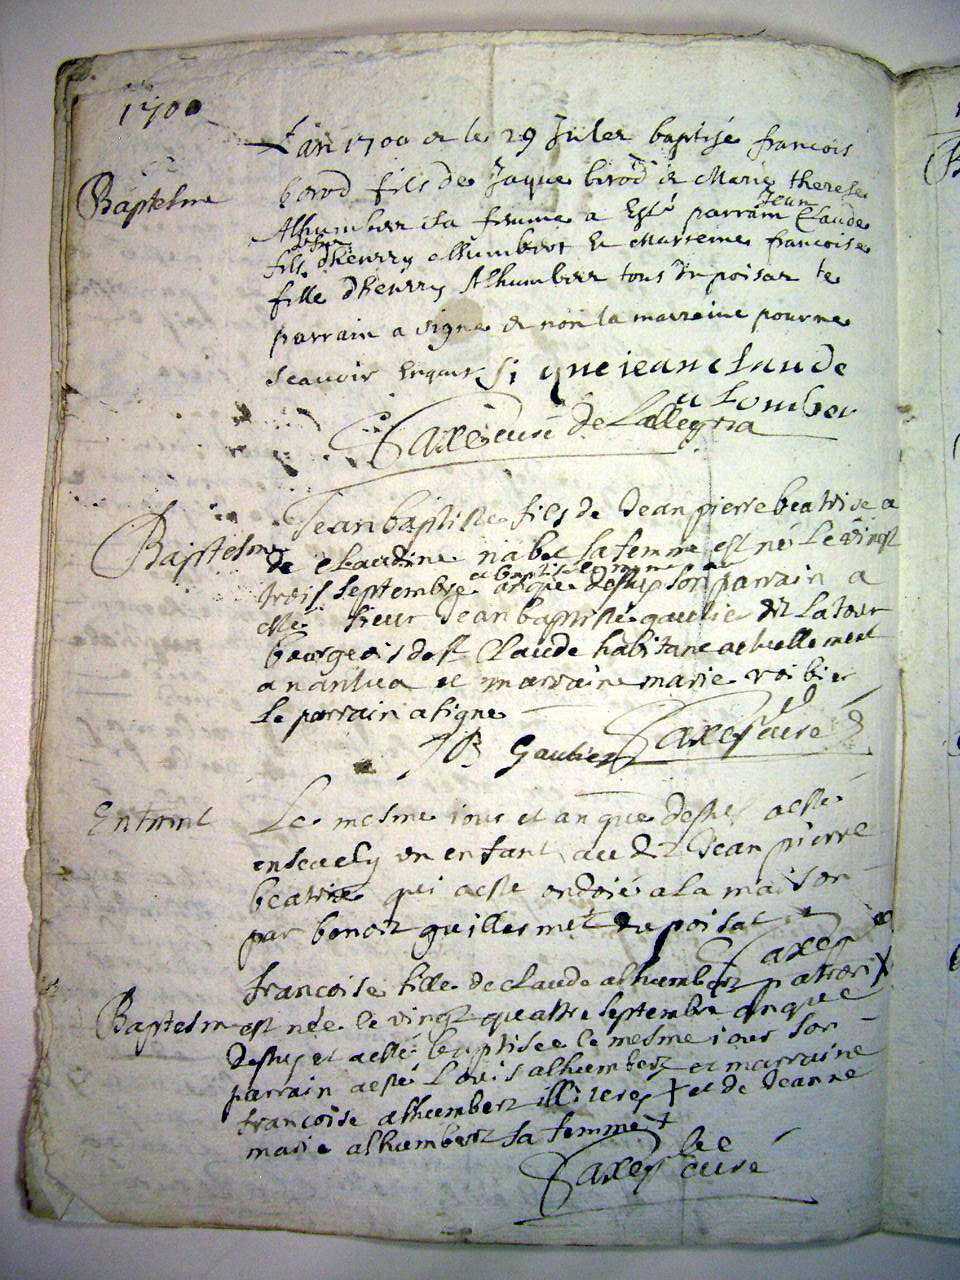 1700
Lan 1700 et le 29 Julet baptisé francois
Baptesme
borod fils de Jaque borod et Marie therese
Alhumbert sa femme a esté parrain Jean Claude
fils dheurry alhumbert et Marreine francoise
fille dheurry Alhumbert tous du poisat le
parrain a signe et non la marreine pour ne
scavoir enquis Si gne jean claude
alombert
Taxe curé de Lalleyria
Baptesme
Jean baptiste fils de Jean pierre beatrise a
de claudine nabee sa femme est né le vingt
trois septembre et baptise le mesme an que dessus son parrain a
esté sieur Jean baptiste gautier dit la tour
bourgeois de st Claude habitant actuellement
a nantua et marraine marie roibier
Le parrain a signe
JB Gautier Taxe curé
Enterment
Le mesme jour et an que dessus a esté
ensevely un enfant audit Jean pierre
beatrise qui a esté ondoié a la maison
par benoit guillermet du poisat
Taxe
francoise fille de claude alhumbert patroix
Baptesm
est née le vingt quattre septembre an que
dessus et a esté baptisée le mesme jour son
parrain a esté Lovis alhumbert et marraine
francoise alhumbert illiteres + et de Jeanne
marie alhumbert sa femme +
Taxe curé